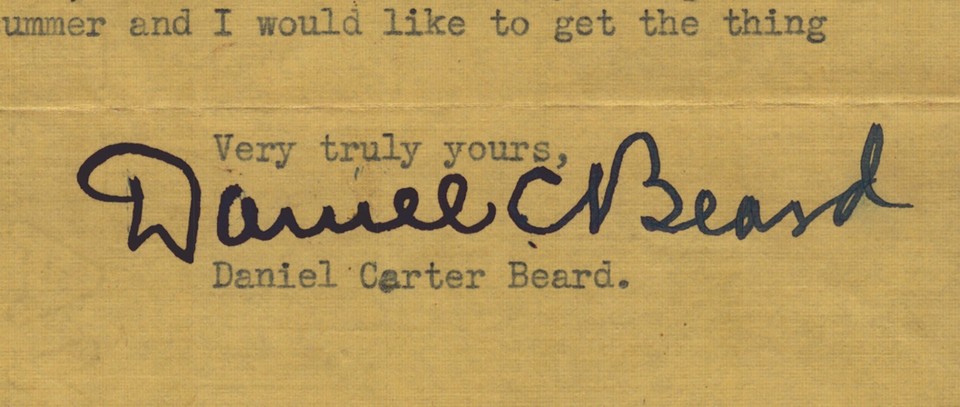 ummer and I would like to get the thing
Very truly yours,
Daniel C Beard
Daniel Carter Beard.